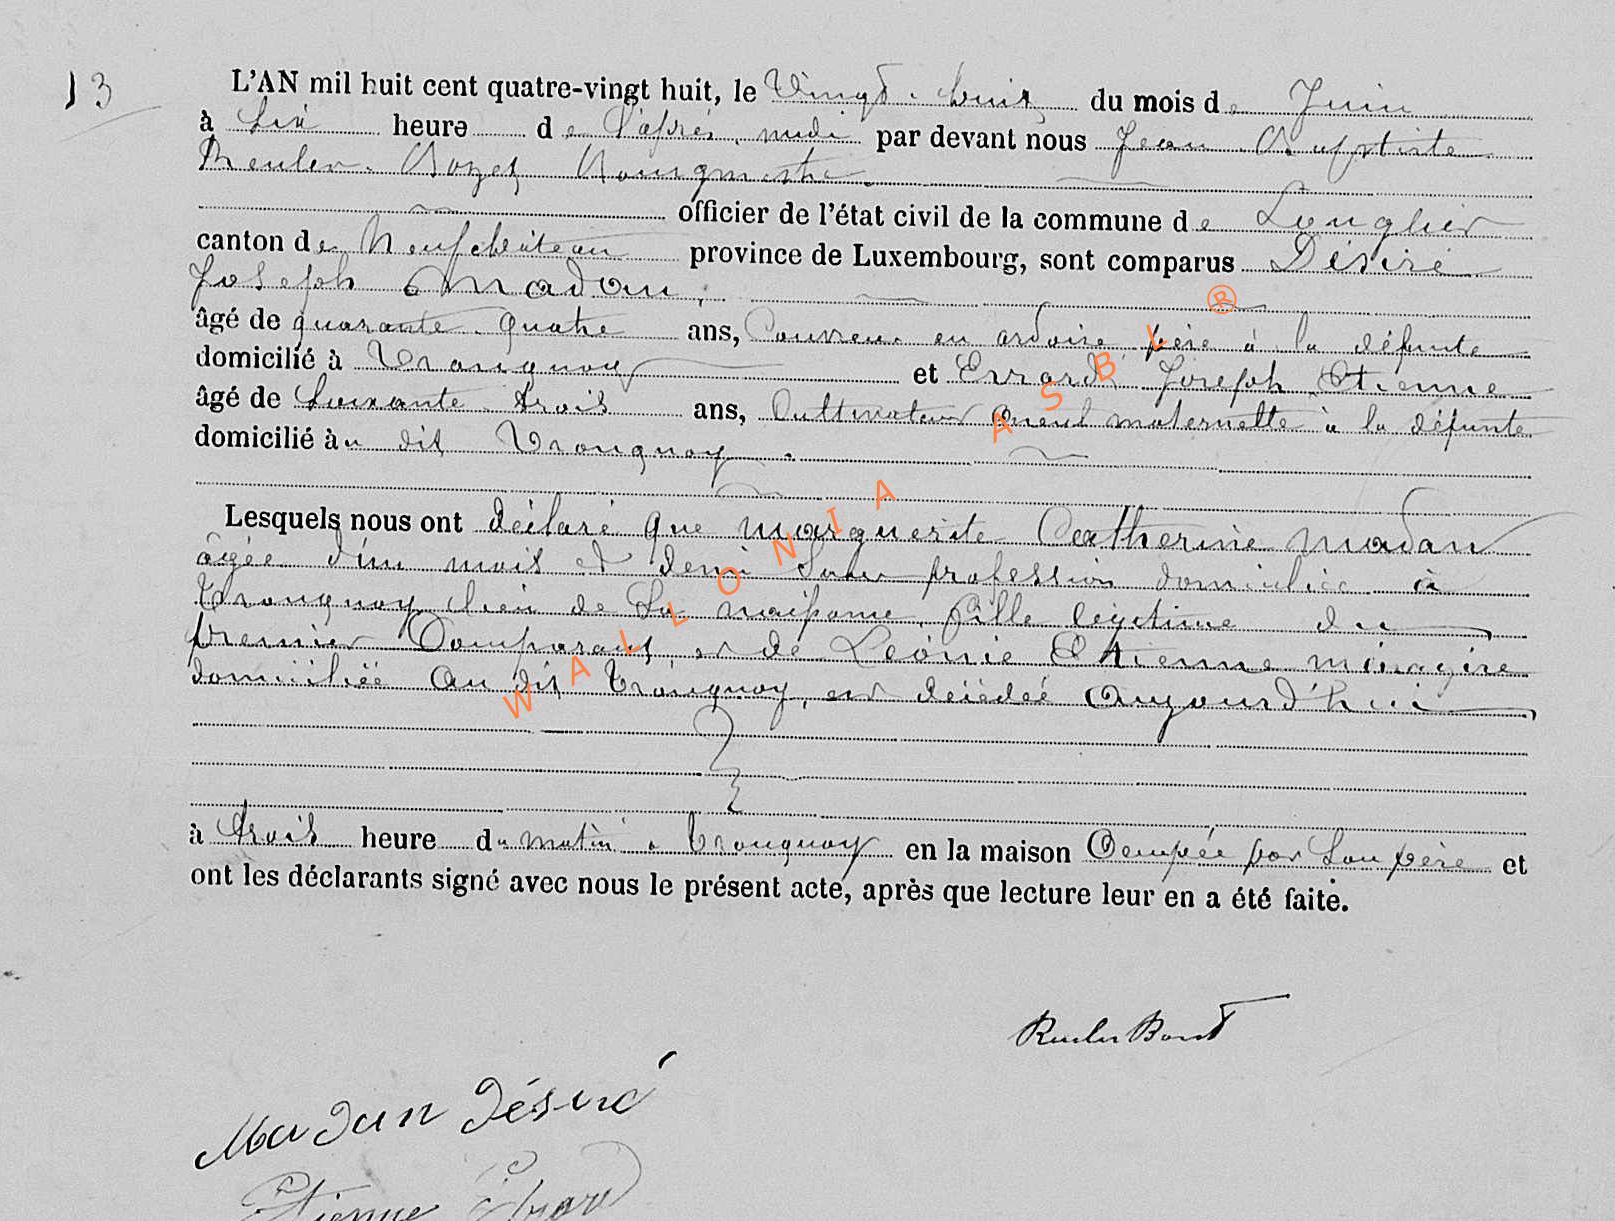 13
L'AN mil huit cent quatre-vingt huit, le Vingt-huit du mois de Juin
à Six heure de l'après midi par devant nous Jean Baptiste
Reuler Bourgmestre
officier de l'état civil de la commune de Longlier
canton de Neufchâteau province de Luxembourg, sont comparus Désiré
Joseph Madan,
âgé de quarante quatre ans, Couvreur en ardoise père à la défunte
domicilié à Tronquoy et Evrard Joseph Etienne
âgé de Soixante trois ans, Cultivateur maternelle à la défunte
domicilié au dit Tronquoy.
Lesquels nous ont déclaré que Marguerite Catherine Madan
âgée d'un mois et demi Sans profession domiciliée à
Tronquoy lieu de Sa naissance fille légitime du
premier Comparant et de Léonie Etienne ménagère
domiciliée au dit Tronquoy, est décédée aujourd'hui
à trois heure du matin à Tronquoy en la maison Occupée par Son père et
ont les déclarants signé avec nous le présent acte, après que lecture leur en a été faite.
Madan Désiré
Etienne Evrard
WALLONIA ASBL ®